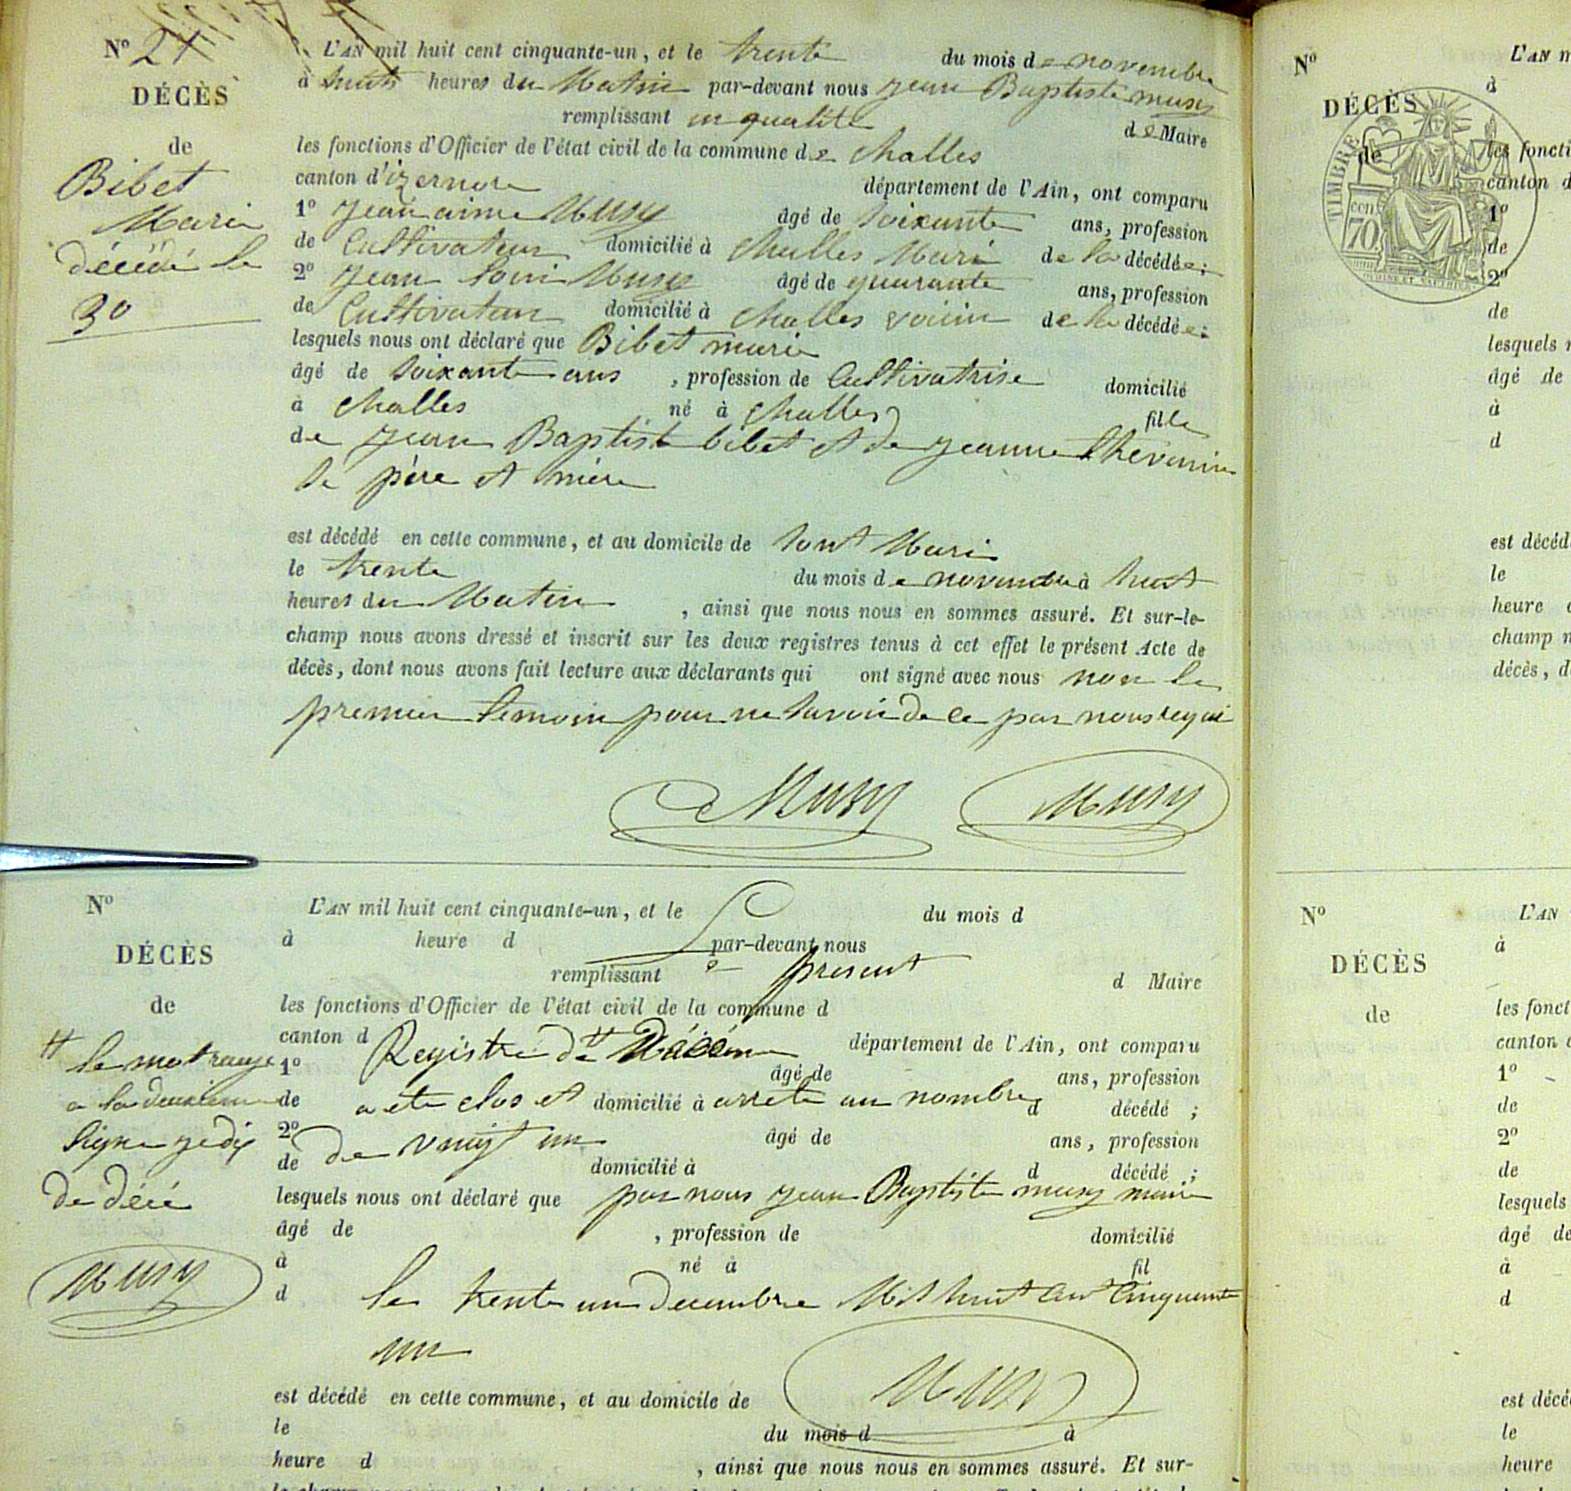 Nº 21
DÉCÈS
de
Bibet
Marie
décédé le
30
L'AN mil huit cent cinquante-un, et le trente du mois de novembre
à huit heures du Matin par-devant nous jean Baptiste musy
remplissant en qualité de Maire
les fonctions d'Officier de l'état civil de la commune de challes
canton d'izernore département de l'Ain, ont comparu
1º jean aime Musy âgé de soixante ans, profession
de Cultivateur domicilié à challes Mari de la décédée;
2º jean Musy âgé de quarante ans, profession
de Cultivateur domicilié à challes voisin de la décédée;
lesquels nous ont déclaré que Bibet marie
âgé de soixante ans, profession de Cultivatrise domicilié
à challes né à challes fille
de jean Baptiste bibet et de jeanne
père et mère
est décédé en cette commune, et au domicile de sont Mari
le trente du mois de novembre à huit
heures du Matin, ainsi que nous nous en sommes assuré. Et sur-le-
champ nous avons dressé et inscrit sur les deux registres tenus à cet effet le présent Acte de
décès, dont nous avons fait lecture aux déclarants qui ont signé avec nous non le
premier temoin pour ne savoir de ce par nous requi
Musy Musy
Nº
DÉCÈS
de
le mot raye
a la deuxieme
ligne
de décé
Musy
L'AN mil huit cent cinquante-un, et le du mois d
à heure d par-devant nous
remplissant Le present d Maire
les fonctions d'Officier de l'état civil de la commune d
canton d Registre de département de l'Ain, ont comparu
1º âgé de ans, profession
de a ete clos et domicilié à arrete au nombre d décédé ;
2º âgé de ans, profession
de de vingt un domicilié à d décédé ;
lesquels nous ont déclaré que par nous jean Baptiste musy maire
âgé de , profession de domicilié
à né à fil
d le trente un decembre Mil huit cent Cinquante
un
Musy
est décédé en cette commune, et au domicile de
le du mois d à
heure d , ainsi que nous nous en sommes assuré. Et sur-
Nº
DÉCÈS
de
TIMBRE
70
L'AN
à
les foncti
canton d
1º
de
2º
de
lesquels
âgé de
à
d
est décéd
le
heure
champ
décès, d
Nº
DÉCÈS
de
L'AN
à
les fonct
canton
1º
de
2º
de
lesquels
âgé de
à
d
est décé
le
heure